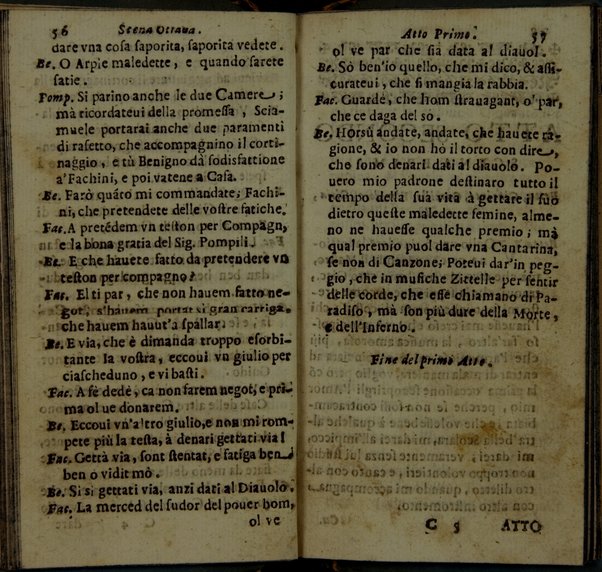 56 Scena Ottaua.
dare vna cosa saporita, saporita vedete.
Be. O Arpie maledette, e quando sarete
satie.
Pomp. Si parino anche le due Camere;
mà ricordateui della promessa, Scia-
muele portarai anche due paramenti
di rasetto, che accompagnino il corti-
naggio, e tù Benigno dà sodisfattione
a'Fachini, e poi vatene a Casa.
Be. Farò quãto mi commandate; Fachi-
ni, che pretendete delle vostre fatiche.
Fac. A pretédem vn teston per Compagn,
e la bona gratia del Sig. Pompili.
Be. E che hauete fatto da pretendere vn
teston per compagno?
Fac. El ti par, che non hauem fatto ne-
got, s'hauem portat sì gran carriga,
che hauem hauut'a spallar.
Be. E via, che è dimanda troppo esorbi-
tante la vostra, eccoui vn giulio per
ciascheduno, e vi basti.
Fac. A fè dedè, ca non farem negot, e pri-
ma ol ue donarem.
Be. Eccoui vn'altro giulio, e non mi rom-
pete più la testa, à denari gettati via!
Fac. Gettà via, sont stentat, e fatiga ben
ben o vidit mò.
Be. Si si gettati via, anzi dati al Diauolo.
Fac. La merced del sudor del pouer hom,
ol ve
Atto Primo. 57
ol ve par che sia data al diauol.
Be. Sò ben'io quello, che mi dico, & assi-
curateui, che si mangia la rabbia.
Fac. Guardè, che hom strauagant, o' par,
che ce daga del so.
Be. Horsù andate, andate, che hauete ra-
gione, & io non hò il torto con dire,
che sono denari dati al diauolo. Po-
uero mio padrone destinaro tutto il
tempo della sua vita à gettare il suo
dietro queste maledette femine, alme-
no ne hauesse qualche premio; mà
qual premio puol dare vna Cantarina,
se non di Canzone; Poteui dar'in peg-
gio, che in musiche Zittelle per sentir
delle corde, che esse chiamano di Pa-
radiso, mà son più dure della Morte,
e dell'Inferno.
Fine del primo Atto.
C 5 ATTO